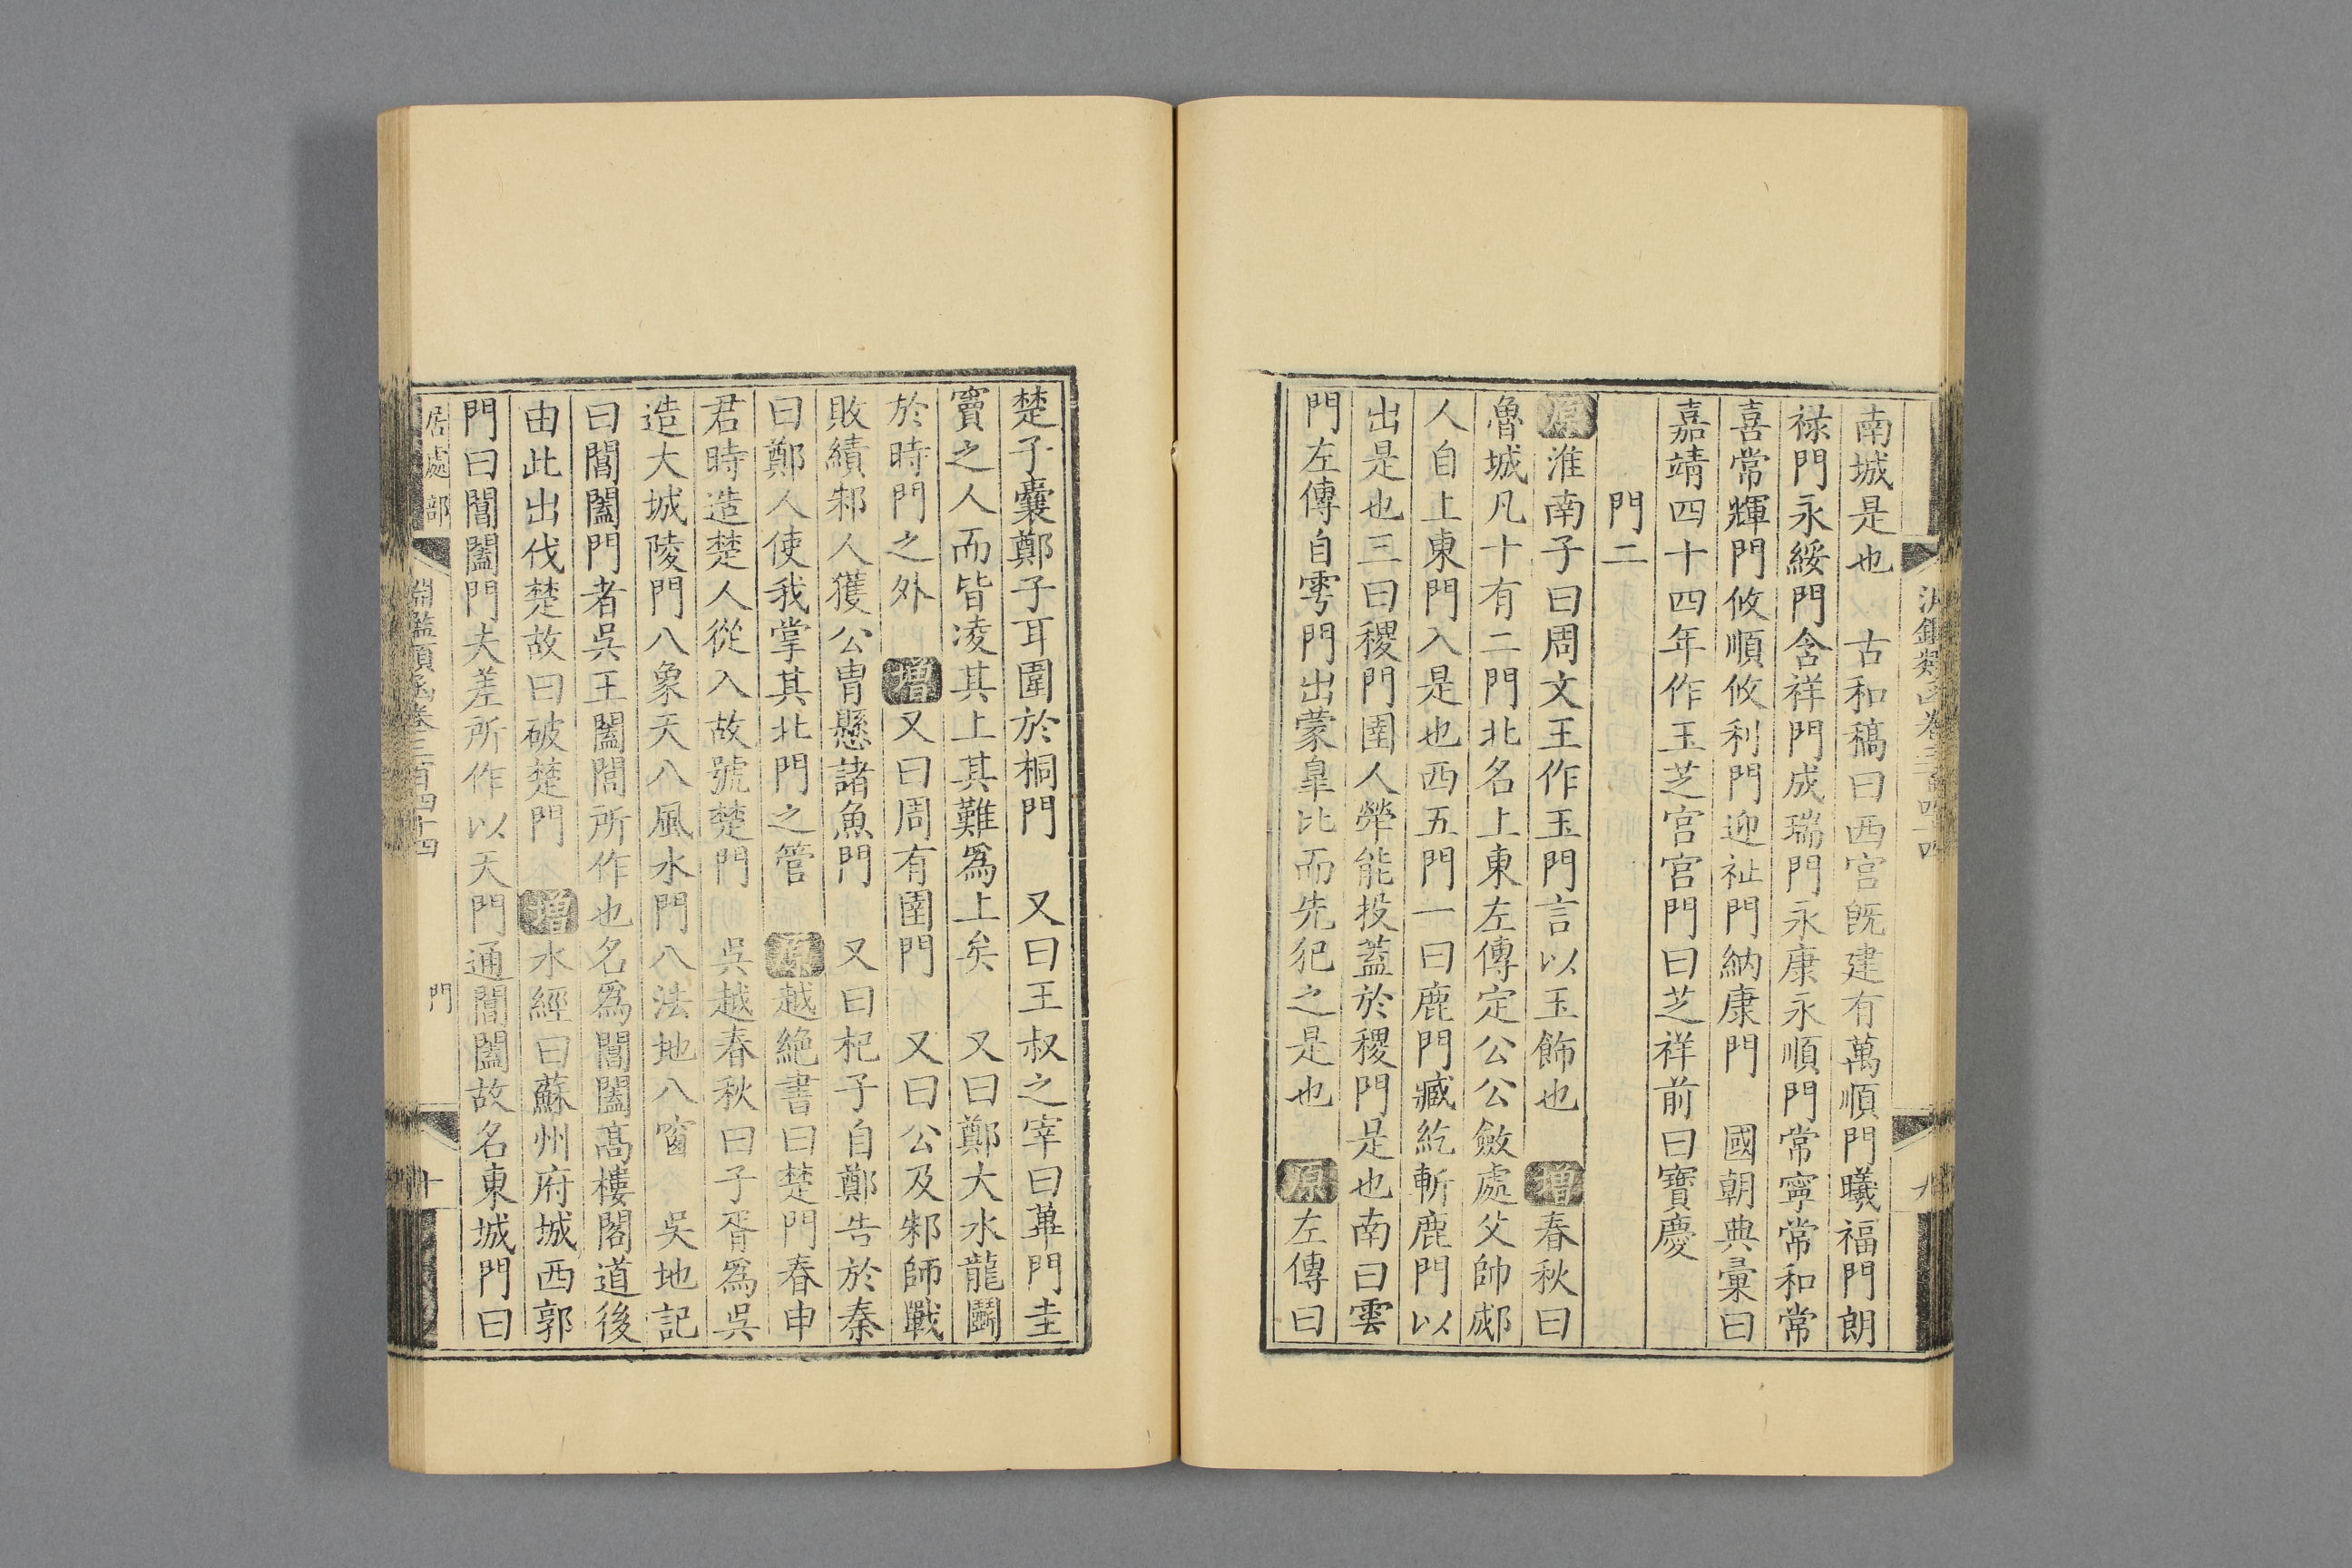 淵鑑類函卷三百四十四
九
南城是也 古和稿曰西宮旣建有萬順門曦福門朗
祿門永綏門含祥門成瑞門永康永順門常寧常和常
喜常輝門攸順攸利門迎祉門納康門 國朝典彙曰
嘉靖四十四年作玉芝宮宮門曰芝祥前曰寶慶
門二
原淮南子曰周文王作玉門言以玉飾也 增春秋曰
魯城凡十有二門北名上東左傳定公公斂處父帥郕
人自上東門入是也西五門一曰鹿門臧紇斬鹿門以
出是也三曰稷門圉人犖能投蓋於稷門是也南曰雩
門左傳自雩門出蒙臯比而先犯之是也 原左傳曰
楚子囊鄭子耳圍於桐門 又曰王叔之宰曰蓽門圭
竇之人而皆凌其上其難爲上矣 又曰鄭大水龍鬭
於時門之外 增又曰周有圉門 又曰公及邾師戰
敗績邾人獲公胄懸諸魚門 又曰杞子自鄭告於秦
曰鄭人使我掌其北門之管 原越絶書曰楚門春申
君時造楚人從入故號楚門 吳越春秋曰子胥爲吳
造大城陵門八象天八風水門八法地八窗 吳地記
曰閶闔門者吳王闔閭所作也名爲閶闔高樓閣道後
由此出伐楚故曰破楚門 增水經曰蘇州府城西郭
門曰閶闔門夫差所作以天門通閶闔故名東城門曰
居處部
淵鑑類函卷三百四十四
門
十